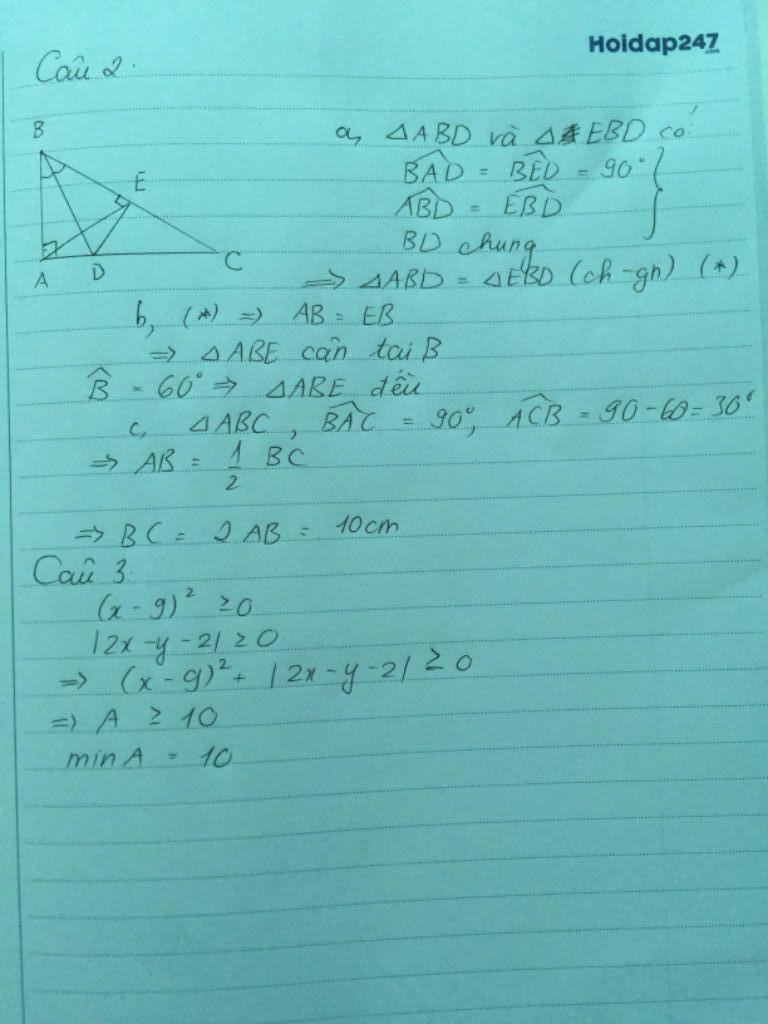 Hoidap247
.com
Câu 2.
B
E
A
D
C
a, △ABD và △EBD có:
BAD̂ = BED̂ = 90°
ABD̂ = EBD̂
BD chung
=> △ABD = △EBD (ch-gn) (*)
b, (*) => AB = EB
=> △ABE cân tại B
B̂ = 60° => △ABE đều
c, △ABC, BAĈ = 90°, ACB̂ = 90-60 = 30°
=> AB = 1/2 BC
=> BC = 2 AB = 10cm
Câu 3.
(x - 9)² ≥0
|2x-y-2| ≥ 0
=> (x - 9)² + |2x-y-2| ≥ 0
=> A ≥ 10
min A = 10